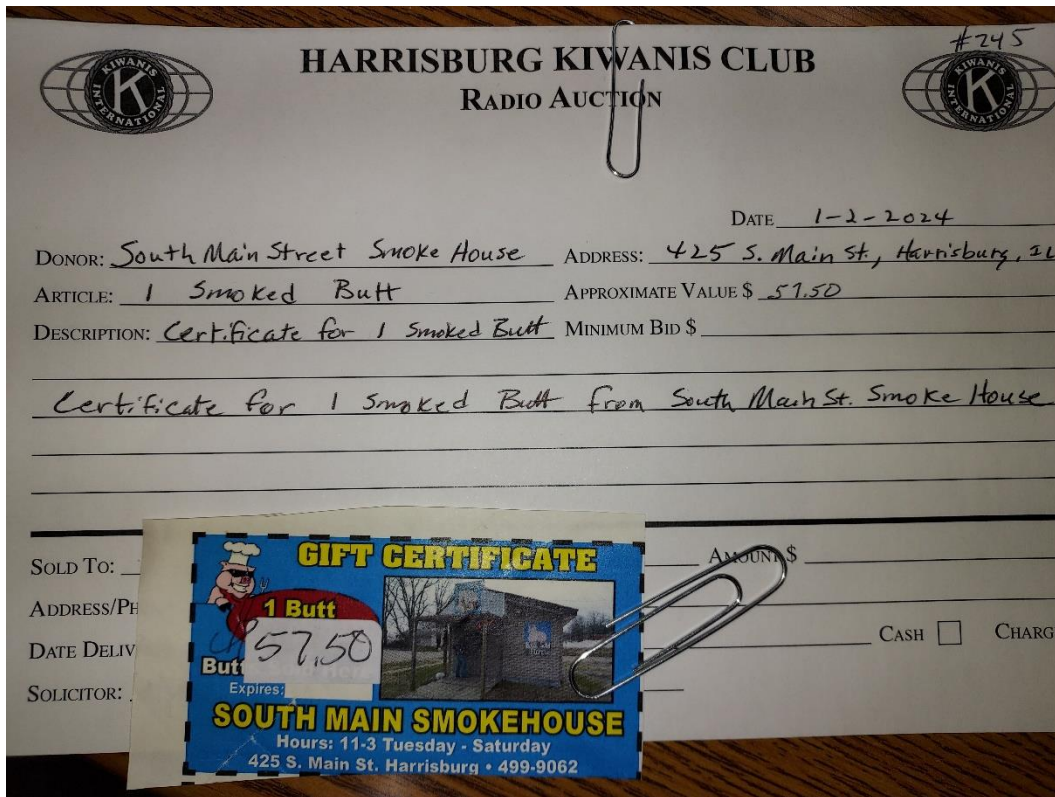 #245
HARRISBURG KIWANIS CLUB
RADIO AUCTION
KIWANIS K INTERNATIONAL
KIWANIS K INTERNATIONAL
DATE 1-2-2024
DONOR: South Main Street Smoke House ADDRESS: 425 S. Main St., Harrisburg, IL
ARTICLE: 1 Smoked Butt APPROXIMATE VALUE $ 57.50
DESCRIPTION: Certificate for 1 Smoked Butt MINIMUM BID $
Certificate for 1 Smoked Butt from South Main St. Smoke House
SOLD TO: AMOUNT $
ADDRESS/PH
DATE DELIV CASH CHARG
SOLICITOR:
GIFT CERTIFICATE
1 Butt
57.50
Butt
Expires:
SOUTH MAIN SMOKEHOUSE
Hours: 11-3 Tuesday - Saturday
425 S. Main St. Harrisburg • 499-9062